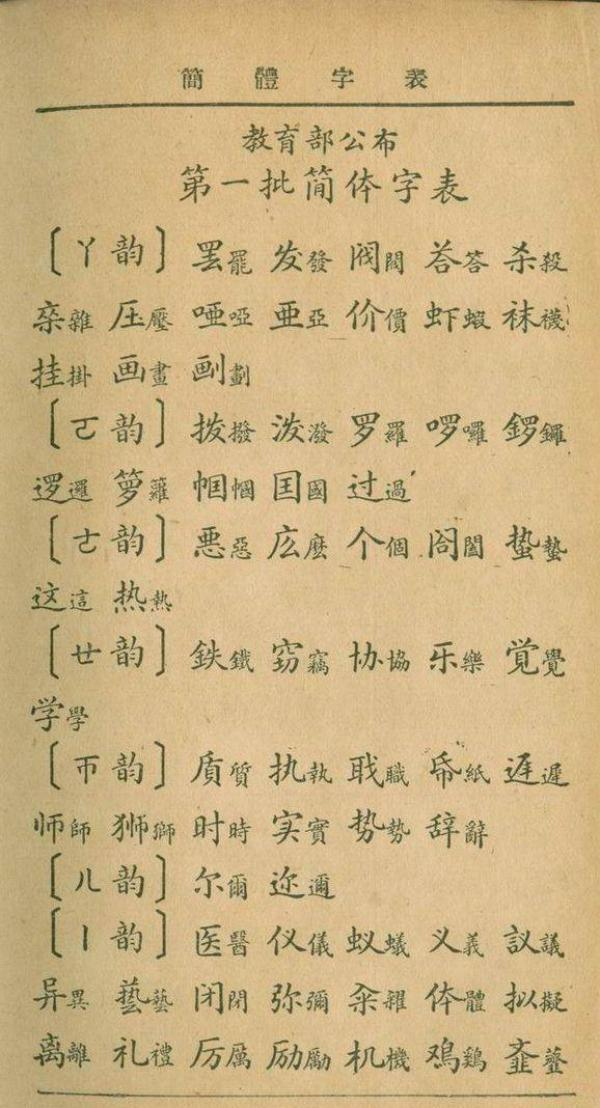 簡體字表
教育部公布
第一批简体字表
〔ㄚ韵〕 罢罷 发發 阀閥 荅答 杀殺
杂雜 压壓 唖啞 亜亞 价價 虾蝦 袜襪
挂掛 画畫 劃
〔ㄛ韵〕 拨撥 泼潑 罗羅 啰囉 锣鑼
逻邏 箩籮 帼幗 国國 过過
〔ㄜ韵〕 悪惡 庅麽 个個 閤闔 蛰蟄
这這 热熱
〔ㄝ韵〕 鉄鐵 窃竊 协協 乐樂 覚覺
学學
〔ㄭ韵〕 质質 执執 职職 帋紙 迟遲
师師 狮獅 时時 实實 势勢 辞辭
〔ㄦ韵〕 尔爾 迩邇
〔ㄧ韵〕 医醫 仪儀 蚁蟻 义義 議
异異 艺藝 闭閉 弥彌 籴糴 体體 拟擬
离離 礼禮 厉厲 励勵 机機 鸡鷄 齑